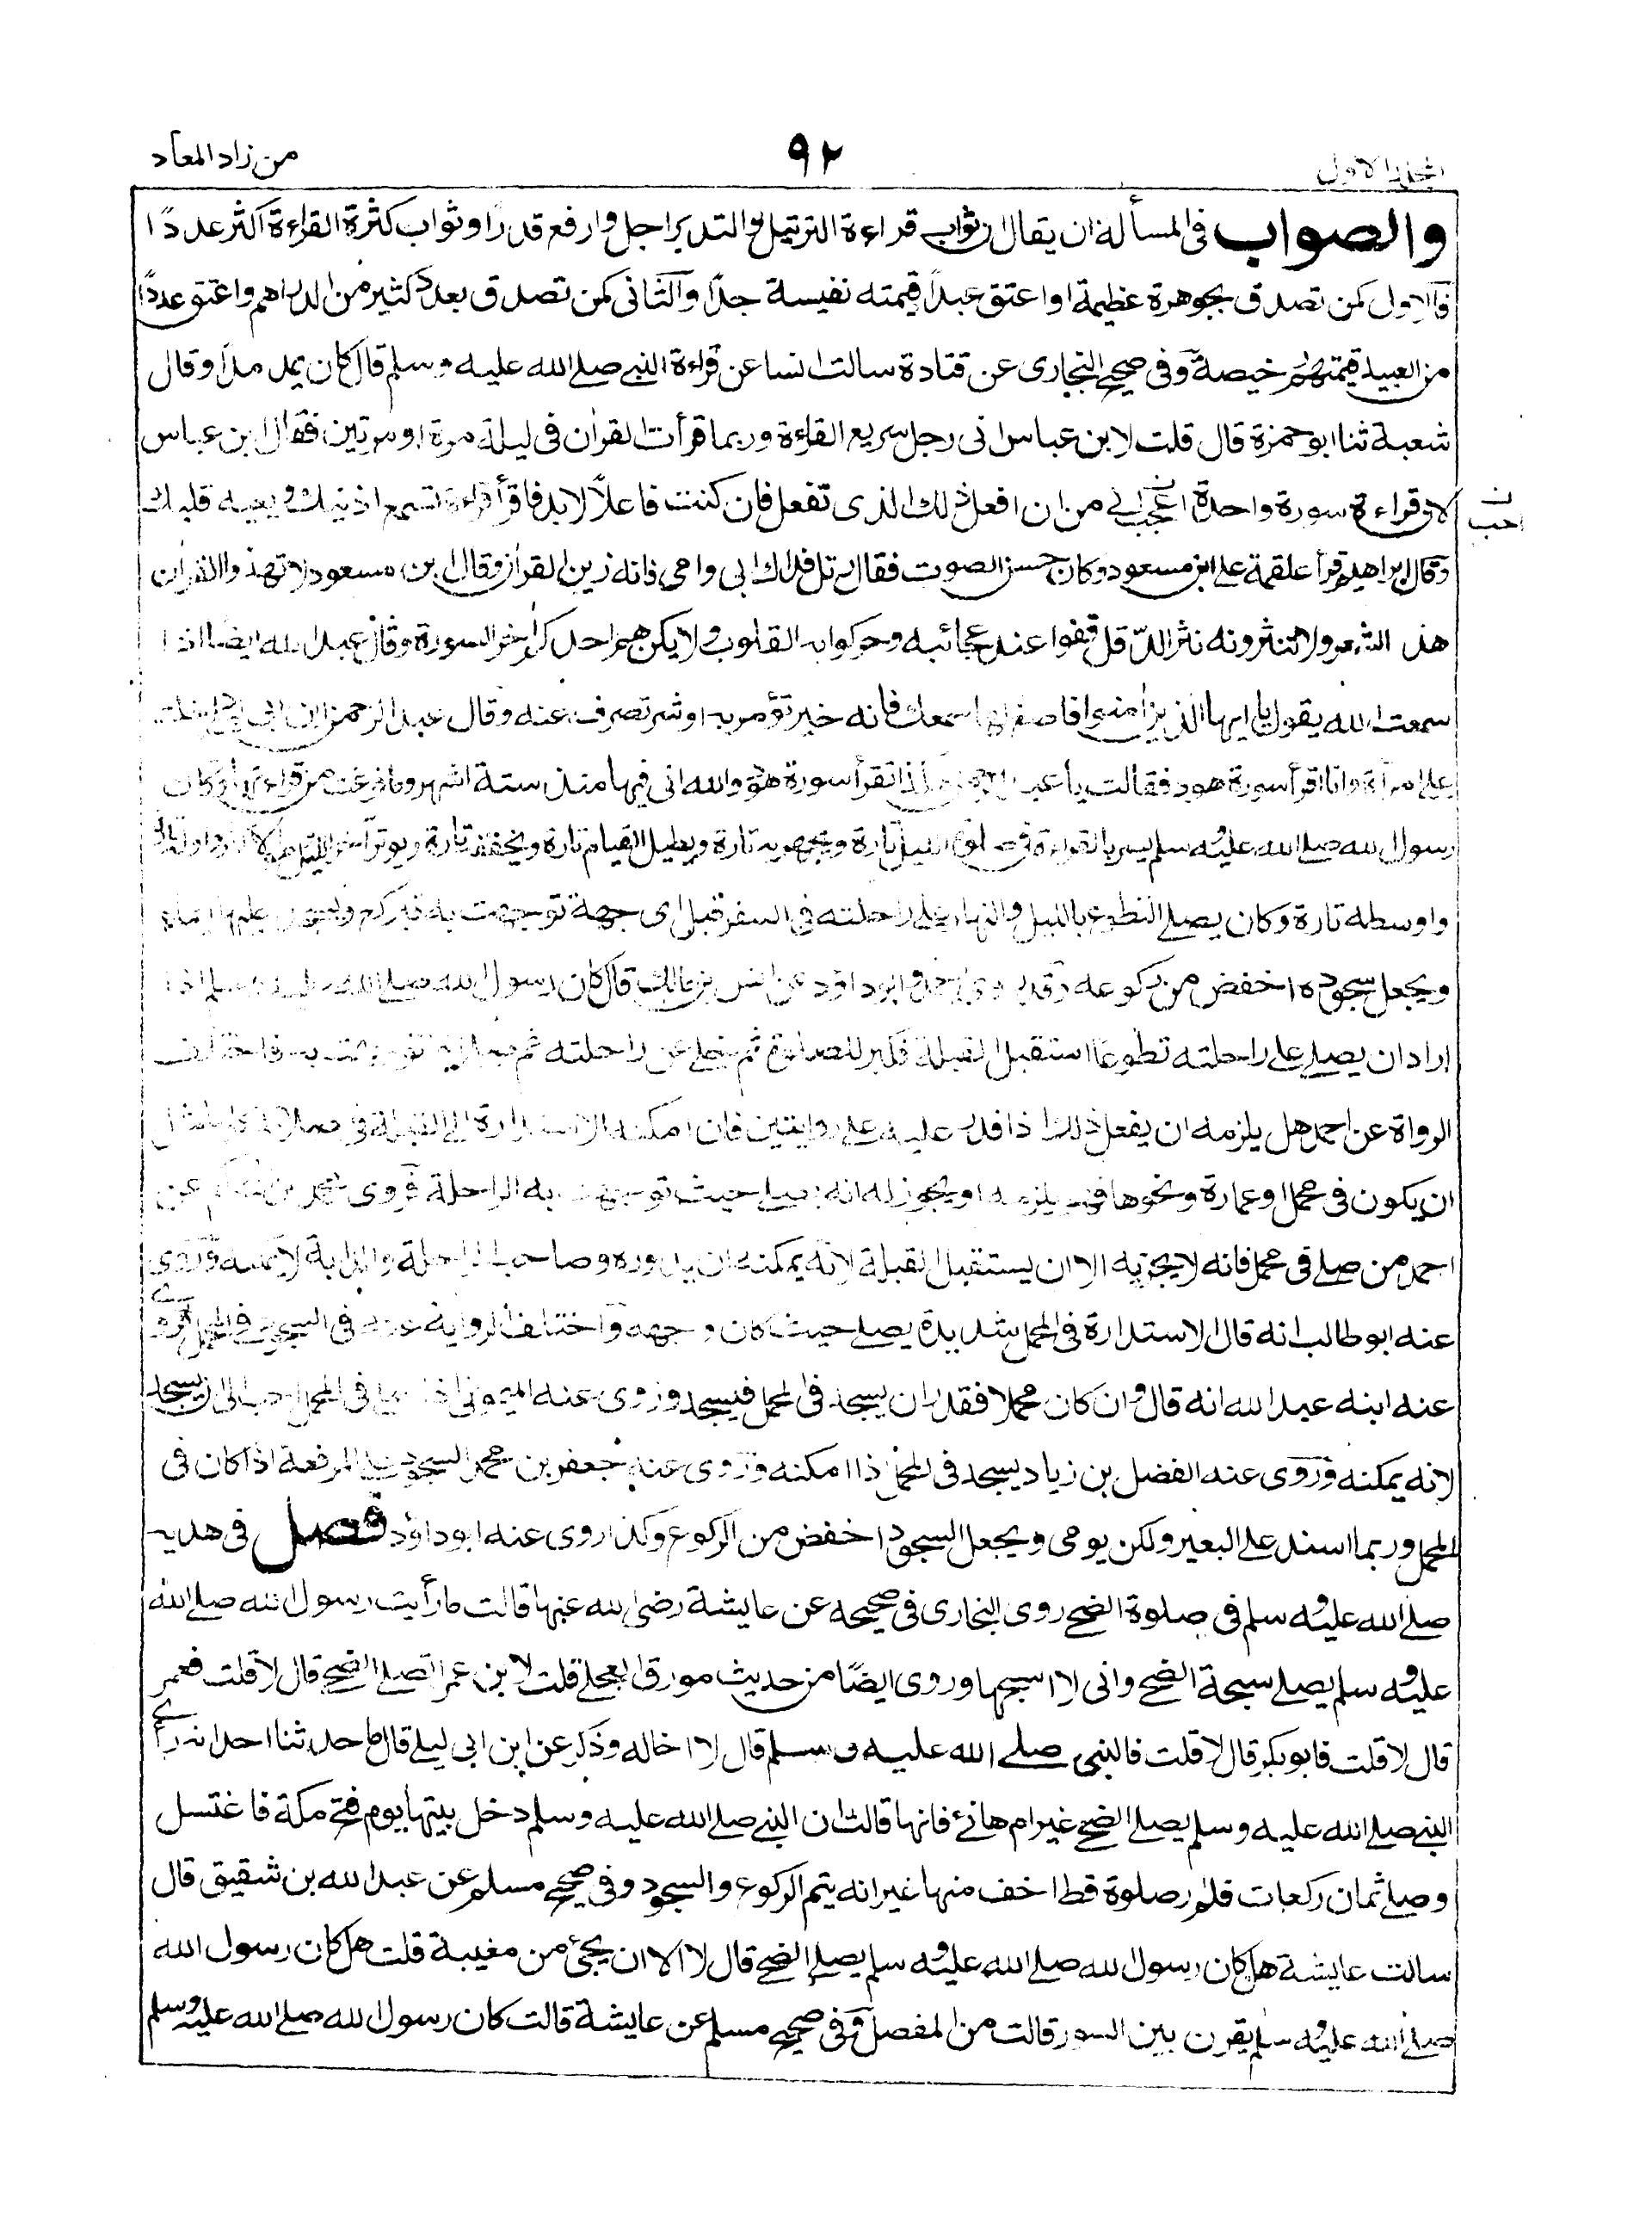 الجلد الاول
٩٢
من زاد المعاد
والصواب فى المسألة ان يقال ان ثواب قراءة الترتيل والتدبر اجل وارفع قدرًا وثواب كثرة القراءة اكثر عددًا
فالاول كمن تصدق بجوهرة عظيمة او اعتق عبداً قيمته نفيسة جدًا والثانى كمن تصدق بعدد كثير من الدراهم واعتق عددًا
من العبيد قيمتهم رخيصة وفى صحيح البخارى عن قتادة سالت انسا عن قراءة النبى صلى الله عليه وسلم قال كان يمد مدًا وقال
شعبة ثنا ابو حمزة قال قلت لابن عباس انى رجل سريع القراءة وربما قرأت القرآن فى ليلة مرة او مرتين فقال ابن عباس
لان قراءة سورة واحدة اعجب الى من ان افعل ذلك الذى تفعل فان كنت فاعلاً لابد فاقرأ قراءة تسمع اذنيك ويعيه قلبك
ن احب
وقال ابراهيم قرأ علقمة على ابن مسعود وكان حسن الصوت فقال رتل فداك ابى وامى فانه زين القرآن وقال ابن مسعود لا تهذوا القرآن
هذ الشعر ولا تنثرونه نثر الدقل قفوا عند عجائبه وحركوا به القلوب ولا يكن هم احدكم آخر السورة وقال عبد الله ايضا اذا
سمعت الله يقول يا ايها الذين آمنوا فاصغ لها سمعك فانه خير تؤمر به او شر تصرف عنه وقال عبد الرحمن بن ابى ليلى دخلت
على امرأة وانا اقرأ سورة هود فقالت يا عبد الرحمن هكذا تقرأ سورة هود والله انى فيها منذ ستة اشهر وما فرغت من قراءتها وكان
رسول الله صلى الله عليه وسلم يسر بالقراءة فى صلوة الليل تارة ويجهر به تارة ويطيل القيام تارة ويخففه تارة ويوتر آخر الليل وهو الاكثر واوله تارة
واوسطه تارة وكان يصلى التطوع بالليل والنهار على راحلته فى السفر قبل اى جهة توجهت به فيركع ويسجد عليها ايماء
ويجعل سجوده اخفض من ركوعه وقد روى احمد وابو داود عن انس بن مالك قال كان رسول الله صلى الله عليه وسلم اذا
اراد ان يصلى على راحلته تطوعًا استقبل القبلة فكبر للصلوة ثم خلى عن راحلته ثم صلى اينما توجهت به فاختلف
الرواة عن احمد هل يلزمه ان يفعل ذلك اذا قدر عليه على روايتين فان امكنه الاستدارة الى القبلة فى صلاته كلها مثل
ان يكون فى محمل او عمارة ونحوها فهل يلزمه او يجوز له انه يصلى حيث توجهت به الراحلة فروى محمد بن الحكم عن
احمد من صلى فى محمل فانه لا يجزيه الا ان يستقبل القبلة لانه يمكنه ان يدوره وصاحب الراحلة والدابة لا يمكنه وروى
عنه ابو طالب انه قال الاستدارة فى المحمل شديدة يصلى حيث كان وجهه واختلف الرواية عنه فى السجود فى المحمل فروى
عنه ابنه عبد الله انه قال وان كان محملا فقدر ان يسجد فى المحمل فيسجد وروى عنه الميمونى اذا صلى فى المحمل احب الى ان يسجد
لانه يمكنه وروى عنه الفضل بن زياد يسجد فى المحمل اذا امكنه وروى عنه جعفر بن محمد السجود على المرفعة اذا كان فى
المحمل وربما اسند على البعير ولكن يومى ويجعل السجود اخفض من الركوع وكذا روى عنه ابو داؤد فصل فى هديه
صلى الله عليه وسلم فى صلوة الضحى روى البخارى فى صحيحه عن عايشة رضى الله عنها قالت ما رأيت رسول الله صلى الله
عليه وسلم يصلى سبحة الضحى وانى لا اسبحها وروى ايضًا من حديث مورق العجلى قلت لابن عمر اتصلى الضحى قال لا قلت فعمر
قال لا قلت فابو بكر قال لا قلت فالنبى صلى الله عليه وسلم قال لا اخاله وذكر عن ابن ابى ليلى قال ما حدثنا احد انه رأى
النبى صلى الله عليه وسلم يصلى الضحى غير ام هانئ فانها قالت ان النبى صلى الله عليه وسلم دخل بيتها يوم فتح مكة فاغتسل
وصلى ثمان ركعات فلم ار صلوة قط اخف منها غير انه يتم الركوع والسجود وفى صحيح مسلم عن عبد الله بن شقيق قال
سالت عايشة هل كان رسول الله صلى الله عليه وسلم يصلى الضحى قال لا الا ان يجئ من مغيبة قلت هل كان رسول الله
صلى الله عليه وسلم يقرن بين السور قالت من المفصل وفى صحيح مسلم عن عايشة قالت كان رسول الله صلى الله عليه وسلم